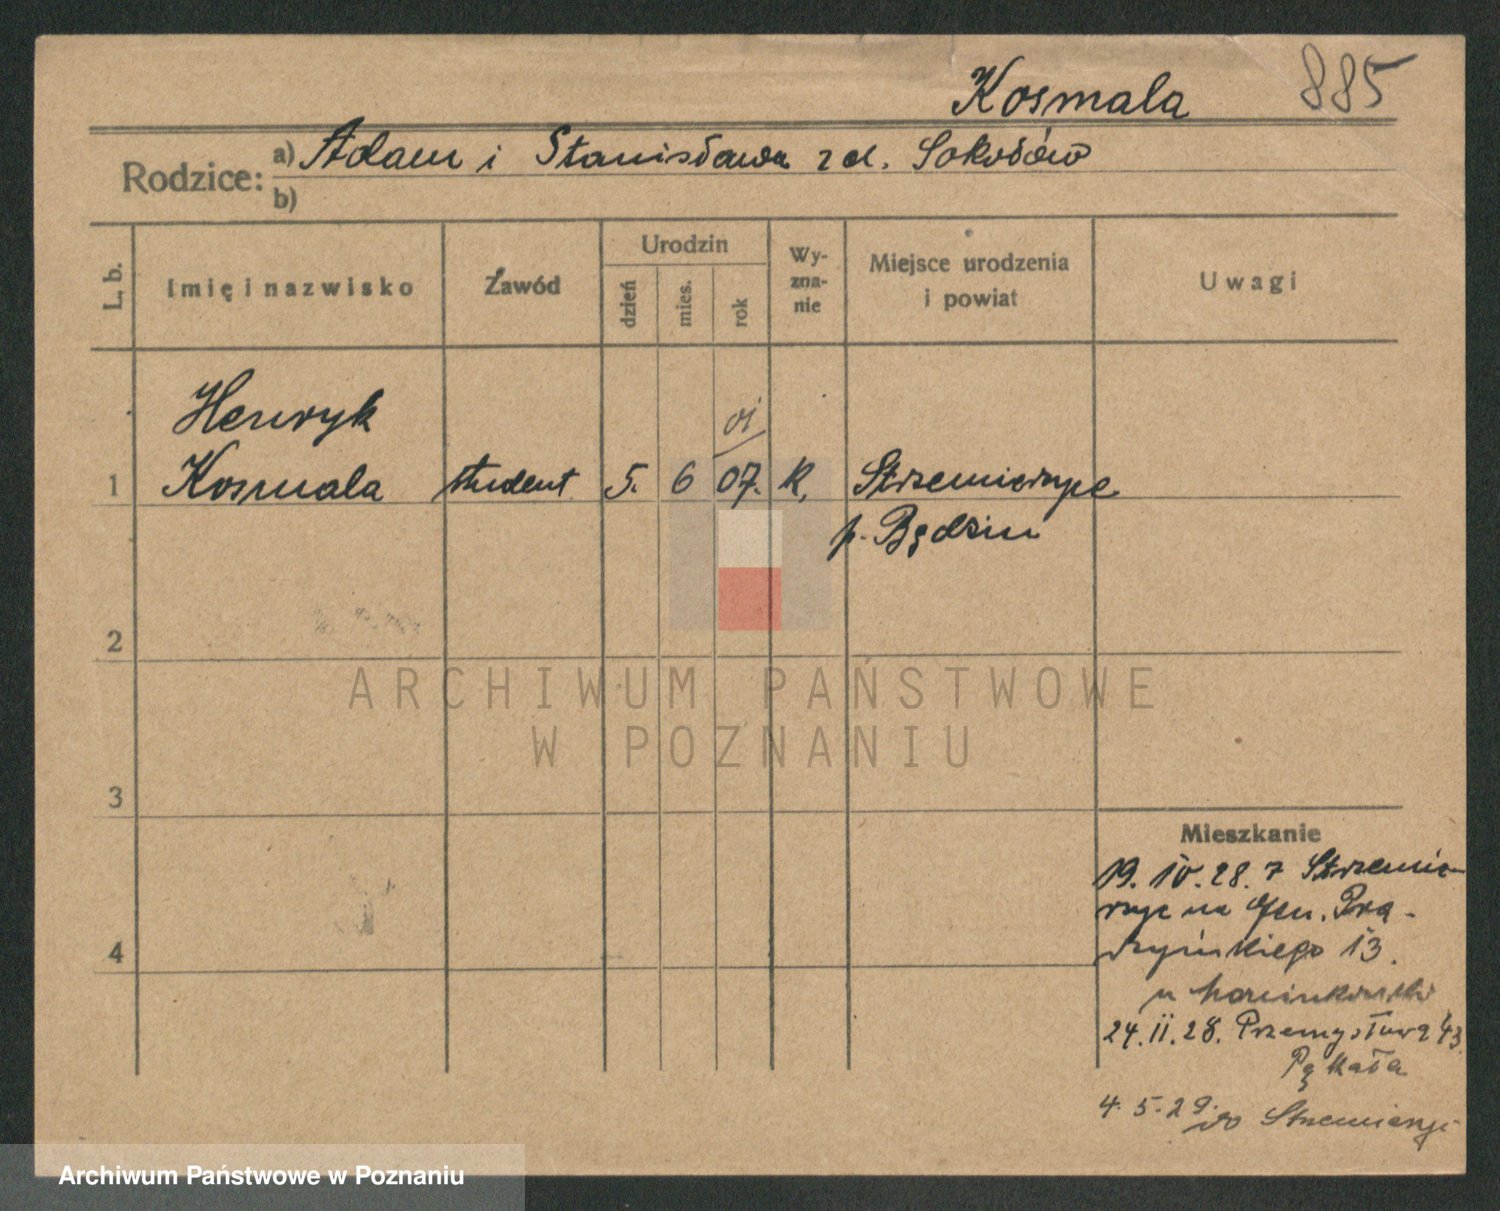 Kosmala 885
Rodzice: a) Adam i Stanisława z d. Sokołów
b)
L. b.
Imię i nazwisko
Zawód
Urodzin
dzień
mies.
rok
Wy-
zna-
nie
Miejsce urodzenia
i powiat
Uwagi
Henryk
1 Kosmala student 5. 6 07. K. Strzemierzyce
p. Będzin
2
3
4
ARCHIWUM PAŃSTWOWE
W POZNANIU
Mieszkanie
19. IV. 28. z Strzemie-
rzyc na Gen. Prą-
dzyńskiego 13.
u
24. II. 28. Przemysłowa 43
Pąkała
4. 5. 29. do Strzemierzyc
Archiwum Państwowe w Poznaniu